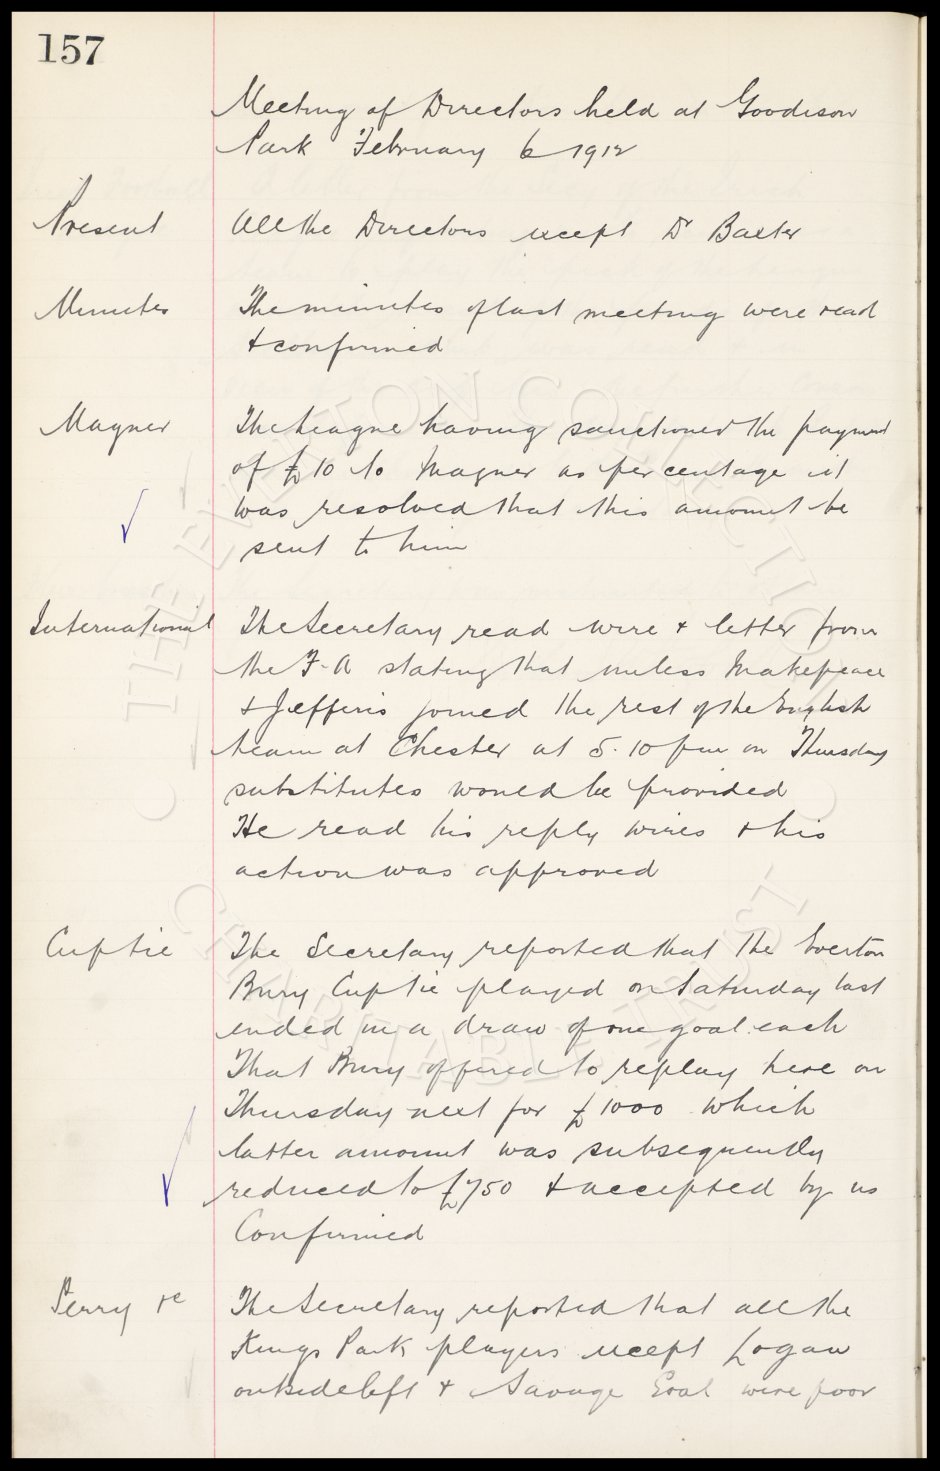 157
Meeting of Directors held at Goodison
Park February 6 1912
Present All the Directors except Dr Baxter
Minutes The minutes of last meeting were read
& confirmed
Magner The League having sanctioned the payment
of £10 to Magner as percentage it
was resolved that this amount be
sent to him
International The Secretary read wire & letter from
the F.A stating that unless Makepeace
& Jefferis joined the rest of the English
team at Chester at 5.10 pm on Thursday
substitutes would be provided
He read his reply wires & his
action was approved
Cuptie The Secretary reported that the Everton
Bury Cuptie played on Saturday last
ended in a draw of one goal each
That Bury offered to replay here on
Thursday next for £1000 which
latter amount was subsequently
reduced to £750 & accepted by us
Confirmed
Perry &c The Secretary reported that all the
Kings Park players except Logan
outside left & Savage Goal were poor
THE EVERTON COLLECTION
CHARITABLE TRUST